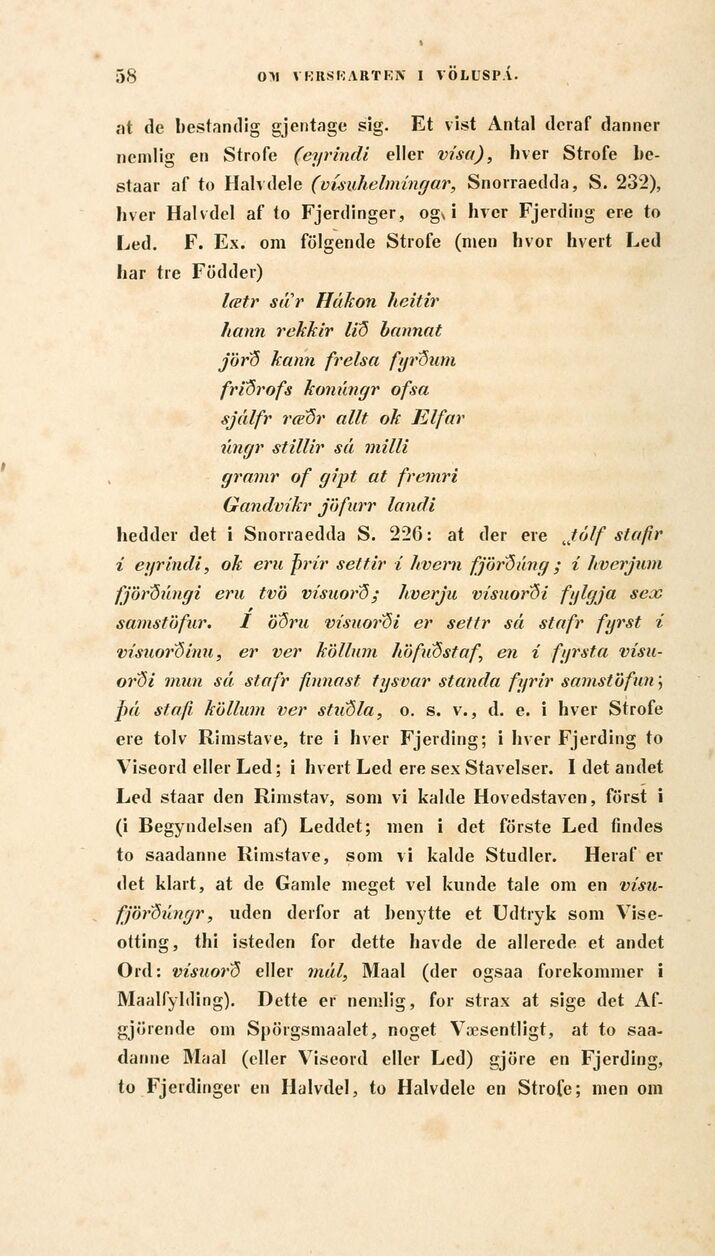 58 OM VERSEARTEN I VÖLUSPÁ.
at de bestandig gjentage sig. Et vist Antal deraf danner
nemlig en Strofe (eyrindi eller vísa), hver Strofe be-
staar af to Halvdele (vísuhelmíngar, Snorraedda, S. 232),
hver Halvdel af to Fjerdinger, og i hver Fjerding ere to
Led. F. Ex. om fölgende Strofe (men hvor hvert Led
har tre Födder)
lætr sá'r Hákon heitir
hann rekkir lið bannat
jörð kann frelsa fyrðum
friðrofs konúngr ofsa
sjálfr ræðr allt ok Elfar
úngr stillir sá milli
gramr of gipt at fremri
Gandvíkr jöfurr landi
hedder det i Snorraedda S. 226: at der ere „tólf stafir
í eyrindi, ok eru þrír settir í hvern fjörðúng; í hverjum
fjörðúngi eru tvö vísuorð; hverju vísuorði fylgja sex
samstöfur. Í öðru vísuorði er settr sá stafr fyrst í
vísuorðinu, er ver köllum höfuðstaf, en í fyrsta vísu-
orði mun sá stafr finnast tysvar standa fyrir samstöfun;
þá stafi köllum ver stuðla, o. s. v., d. e. i hver Strofe
ere tolv Rimstave, tre i hver Fjerding; i hver Fjerding to
Viseord eller Led; i hvert Led ere sex Stavelser. I det andet
Led staar den Rimstav, som vi kalde Hovedstaven, först i
(i Begyndelsen af) Leddet; men i det förste Led findes
to saadanne Rimstave, som vi kalde Studler. Heraf er
det klart, at de Gamle meget vel kunde tale om en vísu-
fjörðúngr, uden derfor at benytte et Udtryk som Vise-
otting, thi isteden for dette havde de allerede et andet
Ord: vísuorð eller mál, Maal (der ogsaa forekommer i
Maalfylding). Dette er nemlig, for strax at sige det Af-
gjörende om Spörgsmaalet, noget Væsentligt, at to saa-
danne Maal (eller Viseord eller Led) gjöre en Fjerding,
to Fjerdinger en Halvdel, to Halvdele en Strofe; men om